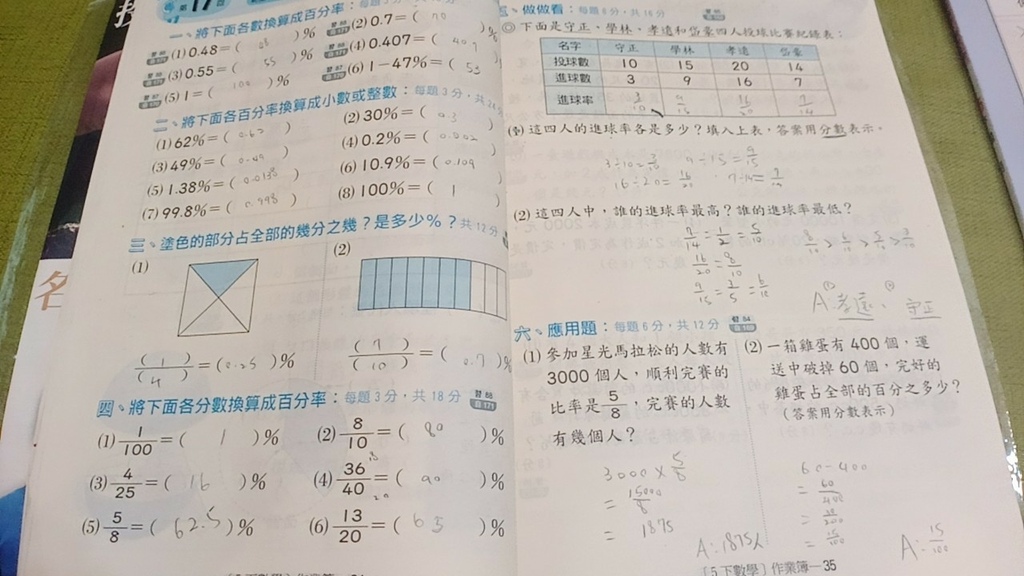 17
一、將下面各數換算成百分率：每題3分，共18分
(1) 0.48=( 48 )%
(2) 0.7=( 70 )%
(3) 0.55=( 55 )%
(4) 0.407=( 40.7 )%
(5) 1=( 100 )%
(6) 1-47%=( 53 )%
二、將下面各百分率換算成小數或整數：每題3分，共24分
(1) 62%=( 0.62 )
(2) 30%=( 0.3 )
(3) 49%=( 0.49 )
(4) 0.2%=( 0.002 )
(5) 1.38%=( 0.0138 )
(6) 10.9%=( 0.109 )
(7) 99.8%=( 0.998 )
(8) 100%=( 1 )
三、塗色的部分占全部的幾分之幾？是多少%？共12分
(1)
(2)
(1)/(4)=(0.25)%
(7)/(10)=( 0.7 )%
四、將下面各分數換算成百分率：每題3分，共18分
(1) 1/100=( 1 )%
(2) 8/10=( 80 )%
(3) 4/25=( 16 )%
(4) 36/40=( 90 )%
(5) 5/8=( 62.5 )%
(6) 13/20=( 65 )%
做做看：每題8分，共16分
◎下面是守正、學林、孝遠和岱豪四人投球比賽紀錄表：
名字 守正 學林 孝遠 岱豪
投球數 10 15 20 14
進球數 3 9 16 7
進球率 3/10 9/15 16/20 7/14
這四人的進球率各是多少？填入上表，答案用分數表示。
3÷10=3/10 9÷15=9/15
16÷20=16/20 7÷14=7/14
(2) 這四人中，誰的進球率最高？誰的進球率最低？
7/14=1/2=5/10 8/10>6/10>5/10>3/10
16/20=8/10
9/15=3/5=6/10
A孝遠、守正
六、應用題：每題6分，共12分
(1) 參加星光馬拉松的人數有
3000個人，順利完賽的
比率是5/8，完賽的人數
有幾個人？
3000×5/8
=15000/8
=1875
A:1875人
(2) 一箱雞蛋有400個，運
送中破掉60個，完好的
雞蛋占全部的百分之多少？
(答案用分數表示)
60÷400
=60/400
=30/200
=15/100
A:15/100
〔5下數學〕作業簿—35